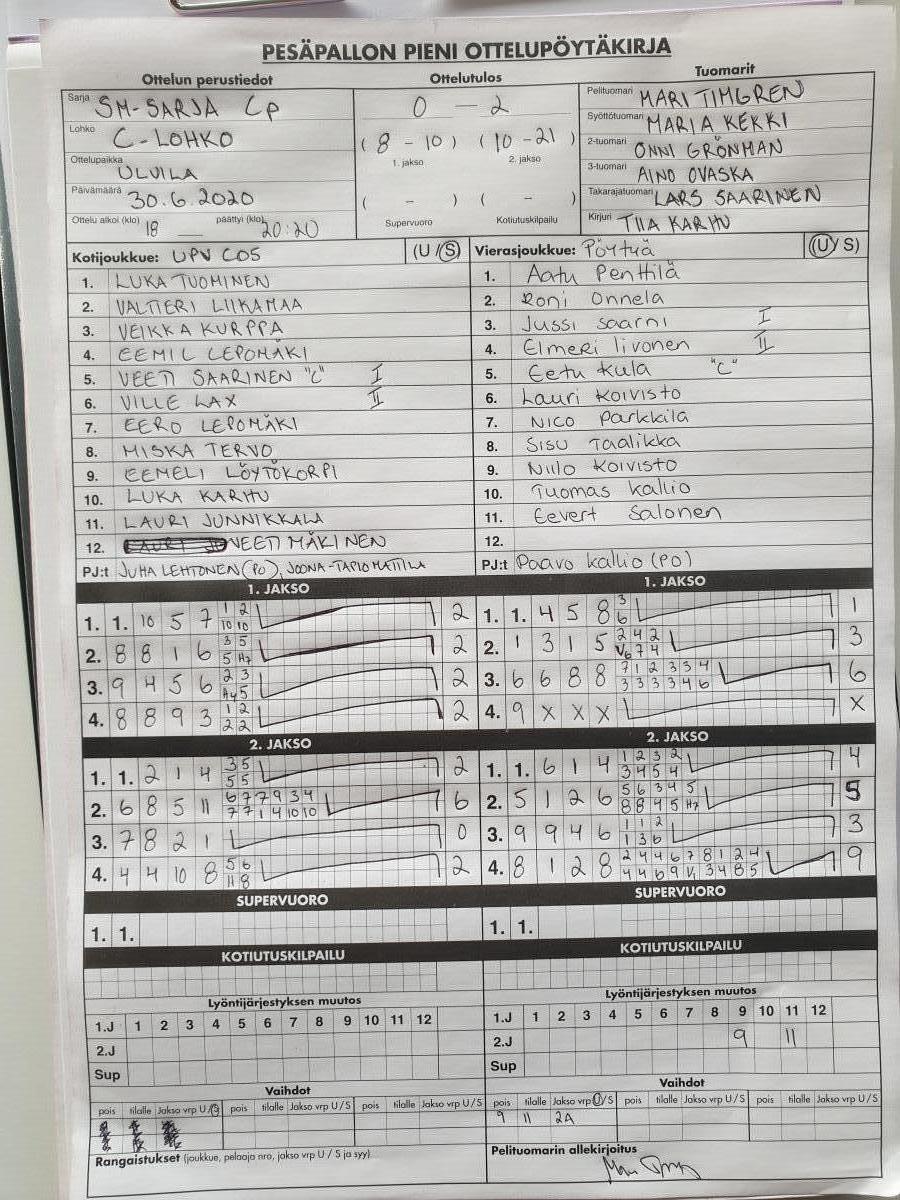 PESÄPALLON PIENI OTTELUPÖYTÄKIRJA
Ottelun perustiedot
Sarja SM-SARJA Cp
Lohko C-LOHKO
Ottelupaikka ULVILA
Päivämäärä 30.6.2020
Ottelu alkoi (klo) 18 päättyi (klo) 20:20
Ottelutulos
0 - 2
( 8 - 10 ) ( 10 - 21 )
1. jakso 2. jakso
( - ) ( - )
Supervuoro Kotiutuskilpailu
Tuomarit
Pelituomari MARI TIMGREN
Syöttötuomari MARIA KEKKI
2-tuomari ONNI GRÖNMAN
3-tuomari AINO OVASKA
Takarajatuomari LARS SAARINEN
Kirjuri TIIA KARHU
Kotijoukkue: UPV C05 (U / S)
1. LUKA TUOMINEN
2. VALTTERI LIIKAMAA
3. VEIKKA KURPPA
4. EEMIL LEPOMÄKI
5. VEETI SAARINEN "C" I
6. VILLE LAX II
7. EERO LEPOMÄKI
8. MISKA TERVO
9. EEMELI LÖYTÖKORPI
10. LUKA KARHU
11. LAURI JUNNIKKALA
12. VEETI MÄKINEN
PJ:t JUHA LEHTONEN (PO), JOONA-TAPIO MATTILA
Vierasjoukkue: Pöytyä (U / S)
1. Aatu Penttilä
2. Roni Onnela
3. Jussi Saarni I
4. Elmeri Iivonen II
5. Eetu Kula "C"
6. Lauri Koivisto
7. NICO Parkkila
8. Sisu Taalikka
9. Niilo Koivisto
10. Tuomas Kallio
11. Eevert Salonen
12.
PJ:t Paavo Kallio (PO)
1. JAKSO
1. 1. 10 5 7 1 2 2
10 10
2. 8 8 1 6 3 5 2
5 Hz
3. 9 4 5 6 2 3 2
5
4. 8 8 9 3 1 2 2
2 2
2. JAKSO
1. 1. 2 1 4 3 5 2
5 5
2. 6 8 5 11 6 7 7 9 3 4 6
7 7 1 4 10 10
3. 7 8 2 1 0
4. 4 4 10 8 5 6 2
11 8
SUPERVUORO
1. 1.
KOTIUTUSKILPAILU
1. JAKSO
1. 1. 4 5 8 3 1
6
2. 1 3 1 5 2 4 2 3
7 4
3. 6 6 8 8 7 1 2 3 3 4 6
3 3 3 3 4 6
4. 9 X X X X
2. JAKSO
1. 1. 6 1 4 1 2 3 2 4
3 4 5 4
2. 5 1 2 6 5 6 3 4 5 5
8 8 4 5 Hz
3. 9 9 4 6 1 1 2 3
1 3 6
4. 8 1 2 8 2 4 4 6 7 8 1 2 4 9
4 4 6 9 3 4 8 5
SUPERVUORO
1. 1.
KOTIUTUSKILPAILU
Lyöntijärjestyksen muutos
1.J 1 2 3 4 5 6 7 8 9 10 11 12
2.J
Sup
Vaihdot
pois tilalle Jakso vrp U / S pois tilalle Jakso vrp U / S pois tilalle Jakso vrp U / S
Rangaistukset (joukkue, pelaaja nro, jakso vrp U / S ja syy)
Lyöntijärjestyksen muutos
1.J 1 2 3 4 5 6 7 8 9 10 11 12
2.J 9 11
Sup
Vaihdot
pois tilalle Jakso vrp U / S pois tilalle Jakso vrp U / S pois tilalle Jakso vrp U / S
9 11 2A
Pelituomarin allekirjoitus